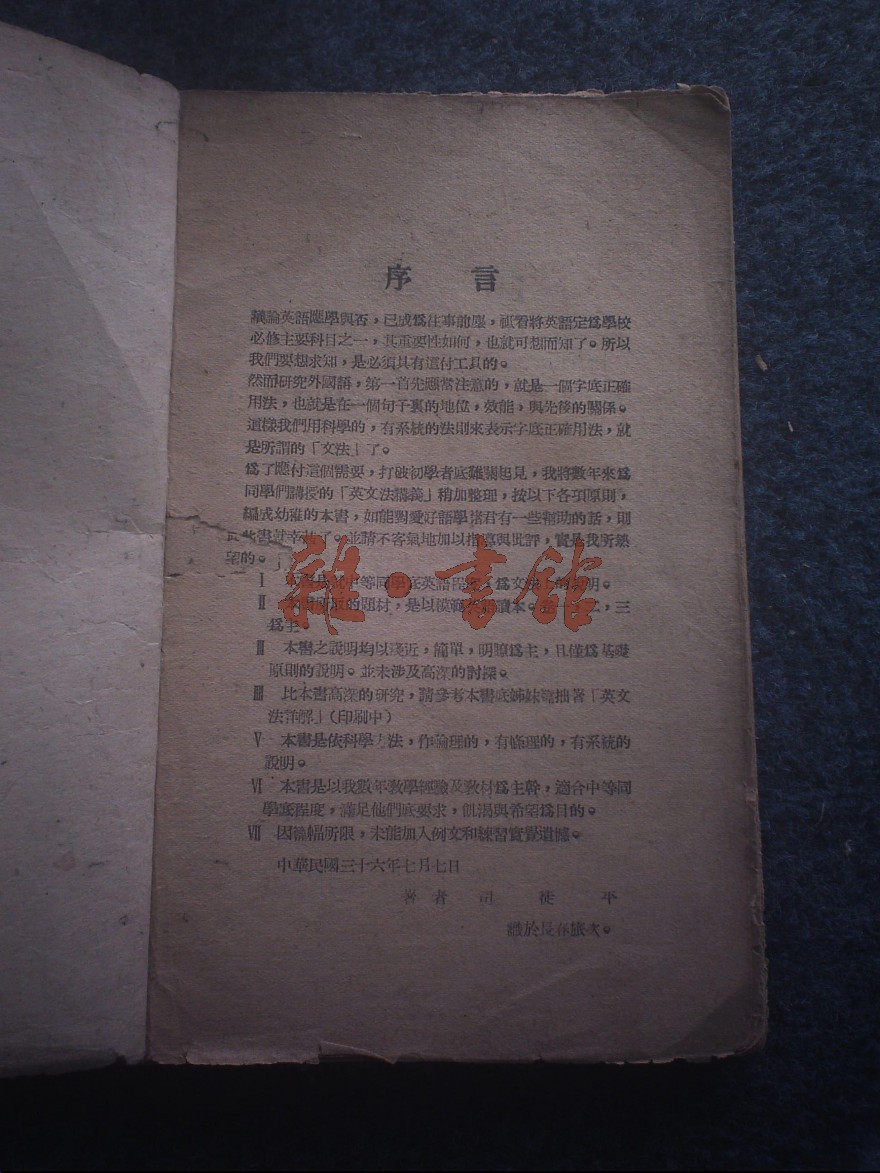 序言
議論英語應學與否，已成爲往事前塵，祇看將英語定爲學校
必修主要科目之一，其重要性如何，也就可想而知了。所以
我們要想求知，是必須具有這付工具的。
然而研究外國語，第一首先應當注意的，就是一個字底正確
用法，也就是在一個句子裏的地位，效能，與先後的關係。
這樣我們用科學的，有系統的法則來表示字底正確用法，就
是所謂的「文法」了。
爲了應付這個需要，打破初學者底難關起見，我將數年來爲
同學們講授的「英文法講義」稍加整理，按以下各項原則，
編成幼稚的本書，如能對愛好語學諸君有一些幫助的話，則
此書就幸甚了。並請不客氣地加以指導與批評，實是我所熱
望的。
I 中等同學底英語程度，爲文法上的說明。
II 本書所取的題材，是以英語讀本，二，三
爲主。
III 本書之說明均以淺近，簡單，明瞭爲主，且僅爲基礎
原則的說明。並未涉及高深的討探。
IIII 比本書高深的研究，請參考本書底姊妹篇拙著「英文
法詳解」（印刷中）
V 本書是依科學方法，作論理的，有條理的，有系統的
說明。
VI 本書是以我數年敎學經驗及敎材爲主幹，適合中等同
學底程度，滿足他們底要求，飢渴與希望爲目的。
VII 因篇幅所限，未能加入例文和練習實覺遺憾。
中華民國三十六年七月七日
著者 司徒平
識於長春旅次。
雜·書館